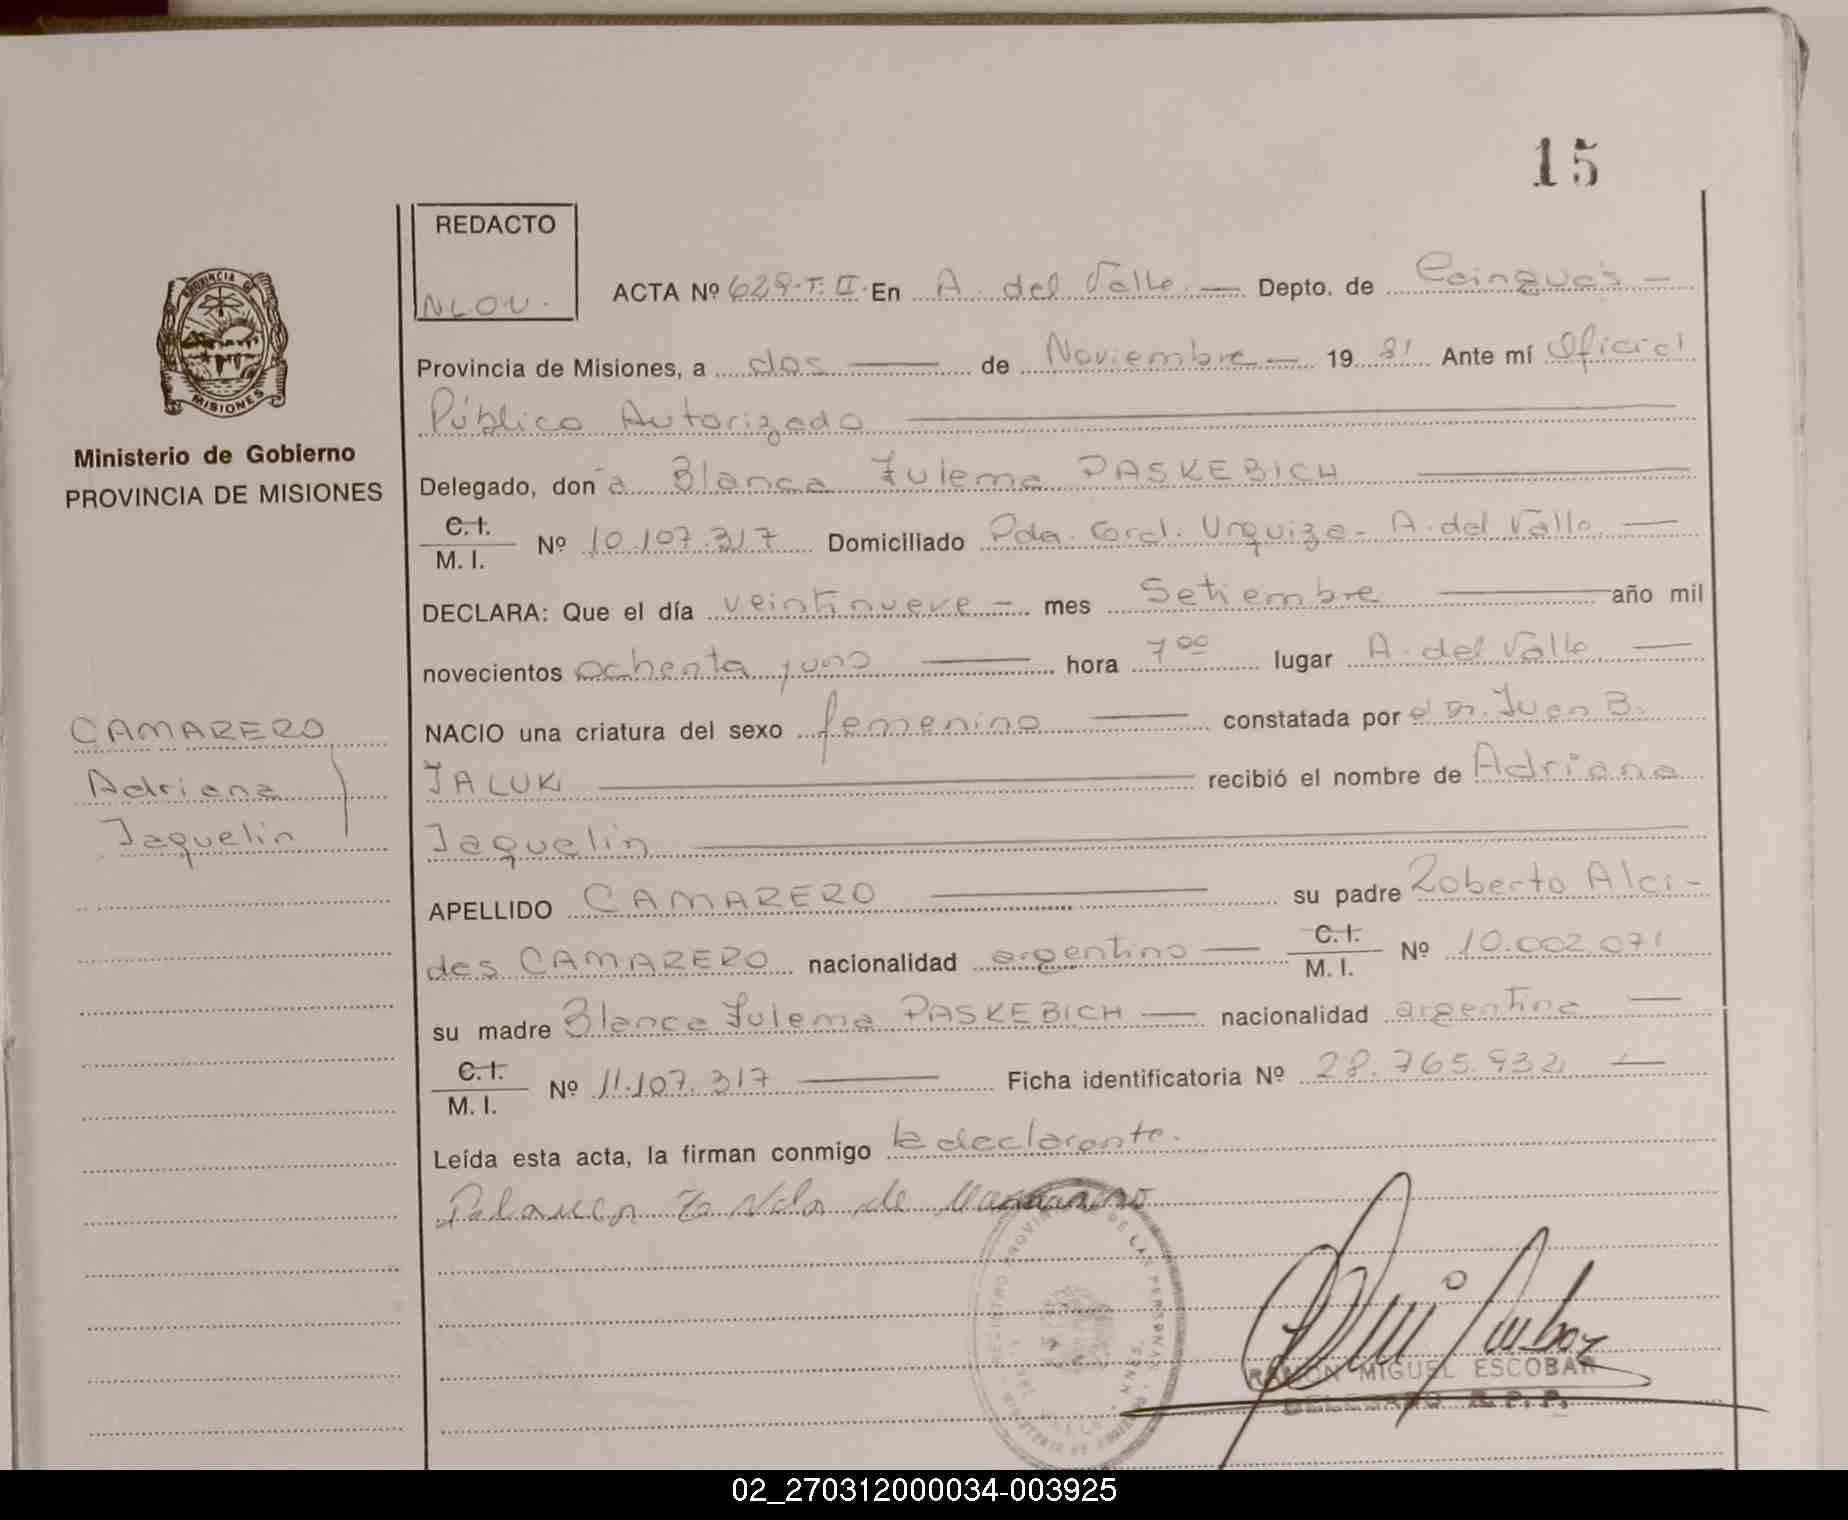 15
REDACTO
NLOV.
PROVINCIA DE
MISIONES
Ministerio de Gobierno
PROVINCIA DE MISIONES
ACTA Nº 629-T. II. En A. del Valle. — Depto. de Cainguás —
Provincia de Misiones, a dos — de Noviembre — 19 81 Ante mí Oficial
Público Autorizado —
Delegado, don a Blanca Zulema PASKEBICH —
C.I. / M. I. Nº 10.107.317 Domiciliado Pda. Gral. Urquiza - A. del Valle —
DECLARA: Que el día veintinueve — mes Setiembre — año mil
novecientos ochenta y uno — hora 7 00 lugar A. del Valle —
NACIO una criatura del sexo femenino — constatada por el Dr. Juan B.
JALUK — recibió el nombre de Adriana
Jaquelin —
CAMARERO
Adriana
Jaquelin
APELLIDO CAMARERO — su padre Roberto Alci-
des CAMARERO nacionalidad argentino — C.I. / M. I. Nº 10.002.071
su madre Blanca Zulema PASKEBICH — nacionalidad argentina —
C.I. / M. I. Nº 11.107.317 — Ficha identificatoria Nº 28.765.932 —
Leída esta acta, la firman conmigo la declarante.
Blanca Z de Camarero
RAMON MIGUEL ESCOBAR
DELEGADO R.P.P.
02_270312000034-003925